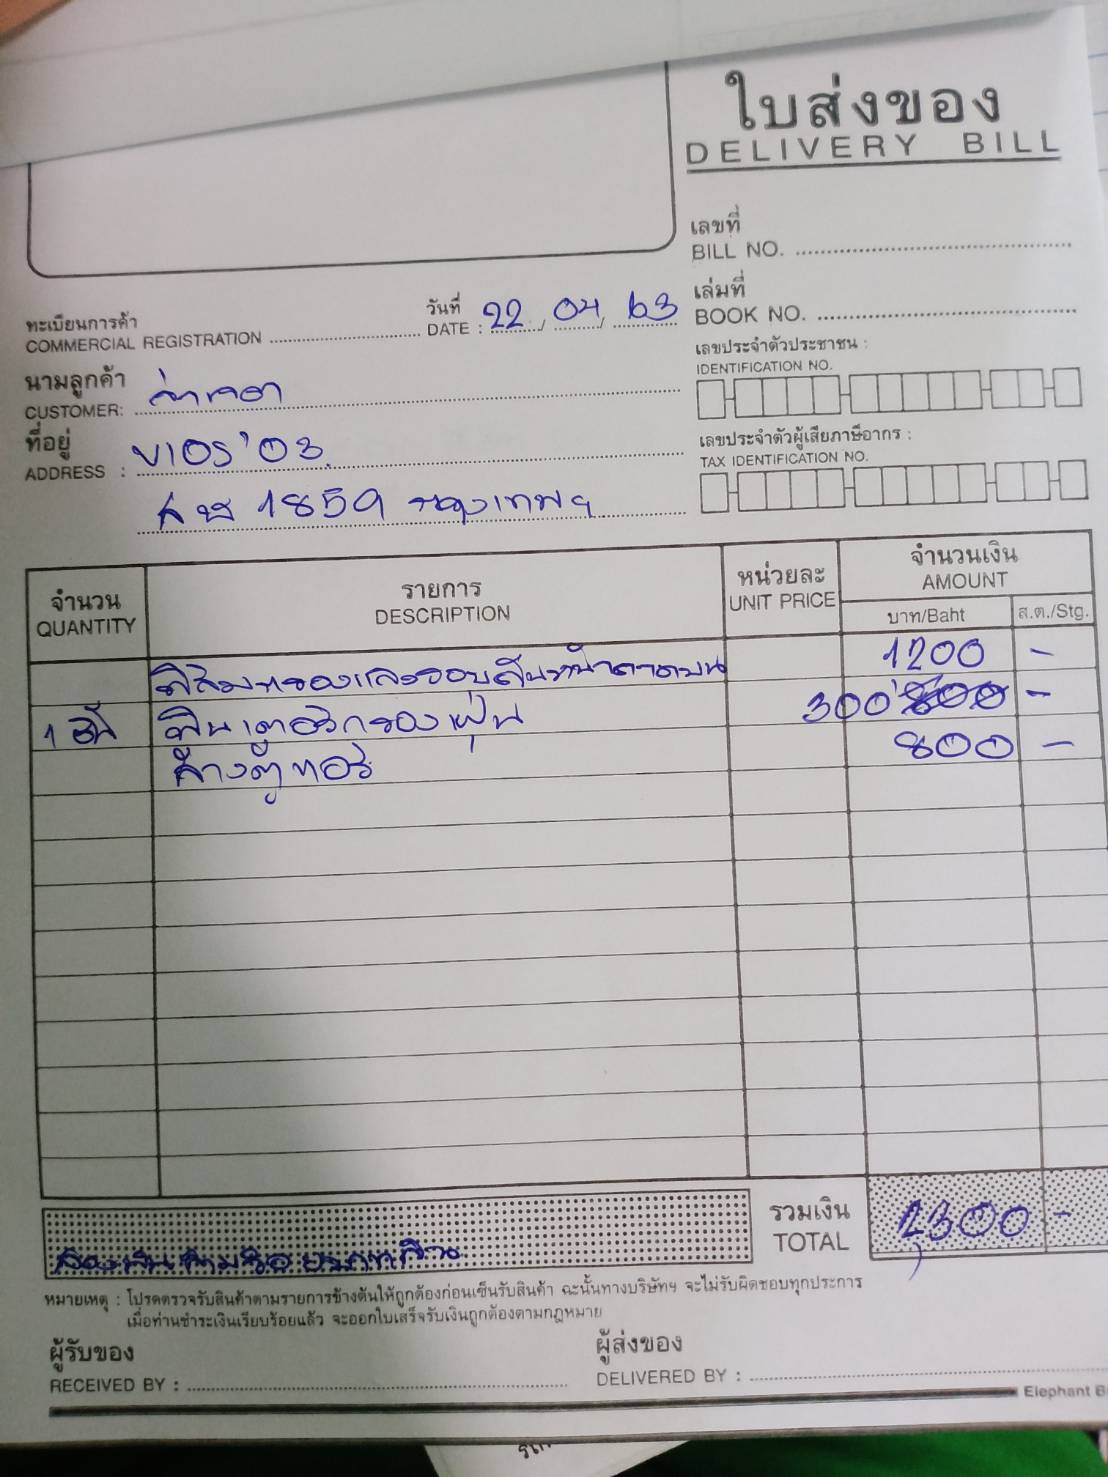 ใบส่งของ
DELIVERY BILL
เลขที่
BILL NO.
ทะเบียนการค้า
COMMERCIAL REGISTRATION
วันที่
DATE : 22 / 04 / 63
เล่มที่
BOOK NO.
นามลูกค้า
CUSTOMER:
เลขประจำตัวประชาชน :
IDENTIFICATION NO.
ที่อยู่
ADDRESS : VIOS '03
1859 กรุงเทพฯ
เลขประจำตัวผู้เสียภาษีอากร :
TAX IDENTIFICATION NO.
จำนวน
QUANTITY
รายการ
DESCRIPTION
หน่วยละ
UNIT PRICE
จำนวนเงิน
AMOUNT
บาท/Baht
ส.ต./Stg.
1200 -
1 อัน ฟิลเตอร์กรองฝุ่น 300 -
ล้างตู้แอร์ 800 -
รวมเงิน
TOTAL
2300 -
หมายเหตุ : โปรดตรวจรับสินค้าตามรายการข้างต้นให้ถูกต้องก่อนเซ็นรับสินค้า ฉะนั้นทางบริษัทฯ จะไม่รับผิดชอบทุกประการ
เมื่อท่านชำระเงินเรียบร้อยแล้ว จะออกใบเสร็จรับเงินถูกต้องตามกฎหมาย
ผู้รับของ
RECEIVED BY :
ผู้ส่งของ
DELIVERED BY :
Elephant